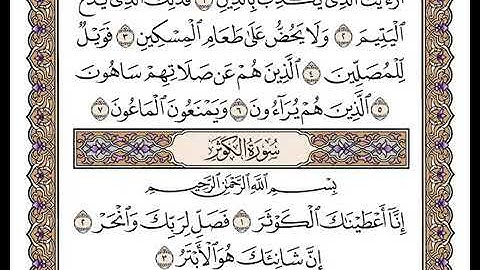 أَرَءَيْتَ الَّذِي يُكَذِّبُ بِالدِّينِ ١ فَذَٰلِكَ الَّذِي يَدُعُّ
الْيَتِيمَ ٢ وَلَا يَحُضُّ عَلَىٰ طَعَامِ الْمِسْكِينِ ٣ فَوَيْلٌ
لِّلْمُصَلِّينَ ٤ الَّذِينَ هُمْ عَن صَلَاتِهِمْ سَاهُونَ
٥ الَّذِينَ هُمْ يُرَآءُونَ ٦ وَيَمْنَعُونَ الْمَاعُونَ ٧
سُورَةُ الْكَوْثَرِ
بِسْمِ اللَّهِ الرَّحْمَٰنِ الرَّحِيمِ
إِنَّآ أَعْطَيْنَاكَ الْكَوْثَرَ ١ فَصَلِّ لِرَبِّكَ وَانْحَرْ ٢
إِنَّ شَانِئَكَ هُوَ الْأَبْتَرُ ٣